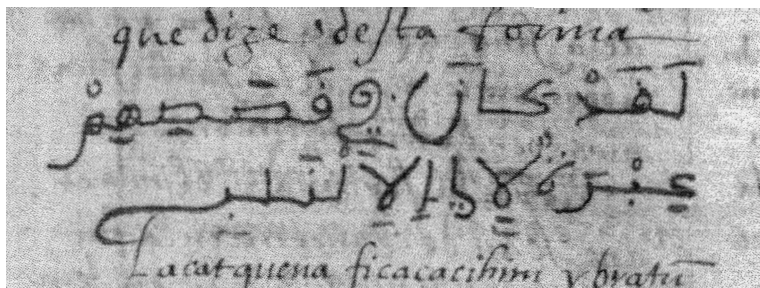 que dize desta forma
لَقَدْ كَانَ فِي قَصَصِهِمْ
عِبْرَةٌ
Lacatquena ficacacihim ybratũ